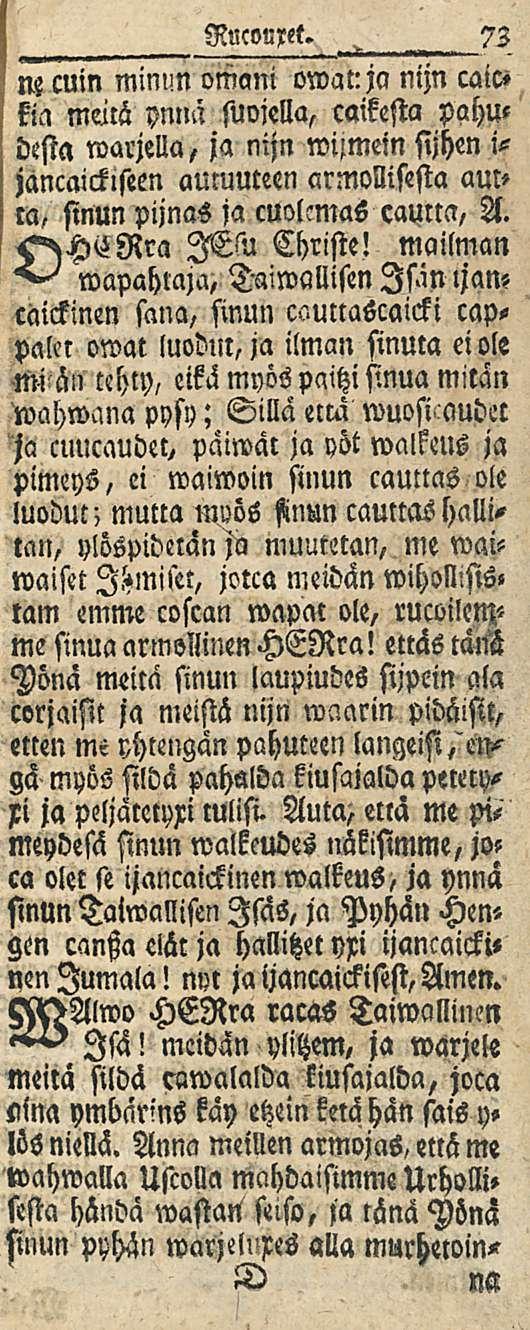 Rucouxet. 73
ne cuin minun omani owat: ja nijn caic⸗
kia meitä ynnä suojella, caikesta pahu⸗
desta warjella, ja nijn wijmein sijhen i⸗
jancaickiseen autuuteen armollisesta aut⸗
ta, sinun pijnas ja cuolemas cautta, A.
OHERra JEsu Christe! mailman
wapahtaja, Taiwallisen Isän ijan⸗
caickinen sana, sinun cauttascaicki cap⸗
palet owat luodut, ja ilman sinuta ei ole
mitän tehty, eikä myös paitzi sinua mitän
wahwana pysy; Sillä että wuosicaudet
ja cuucaudet, päiwät ja yöt walkeus ja
pimeys, ei waiwoin sinun cauttas ole
luodut; mutta myös sinun cauttas halli⸗
tan, ylöspidetän ja muutetan, me wai⸗
waiset Ihmiset, jotca meidän wihollisis⸗
tam emme coscan wapat ole, rucoilem⸗
me sinua armollinen HERra! ettäs tänä
Yönä meitä sinun laupiudes sijpein ala
corjaisit ja meistä nijn waarin pidäisit,
etten me yhtengän pahuteen langeisi, en⸗
gä myös sildä pahalda kiusajalda petety⸗
xi ja peljätetyxi tulisi. Auta, että me pi⸗
meydesä sinun walkeudes näkisimme, jo⸗
ca olet se ijancaickinen walkeus, ja ynnä
sinun Taiwallisen Isäs, ja Pyhän Hen⸗
gen canßa elät ja hallitzet yxi ijancaicki⸗
nen Jumala! nyt ja ijancaickisest, Amen.
WAlwo HERra racas Taiwallinen
Isä! meidän ylitzem, ja warjele
meitä sildä cawalalda kiusajalda, joca
aina ymbärins käy etzein ketä hän sais y⸗
lös niellä. Anna meillen armojas, että me
wahwalla Uscolla mahdaisimme Urholli⸗
sesta händä wastan seiso, ja tänä Yönä
sinun pyhän warjeluxes alla murhetoin⸗
D na